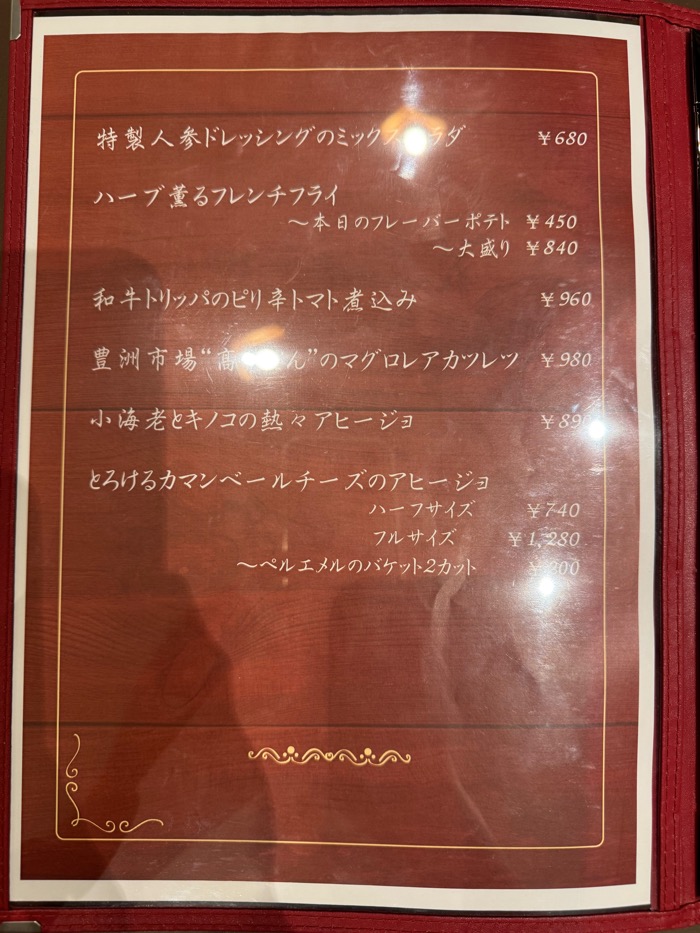 特製人参ドレッシングのミックスサラダ ￥680
ハーブ薫るフレンチフライ
～本日のフレーバーポテト ￥450
～大盛り ￥840
和牛トリッパのピリ辛トマト煮込み ￥960
豊洲市場“髙 ん”のマグロレアカツレツ ￥980
小海老とキノコの熱々アヒージョ ￥890
とろけるカマンベールチーズのアヒージョ
ハーフサイズ ￥740
フルサイズ ￥1,280
～ペルエメルのバケット2カット